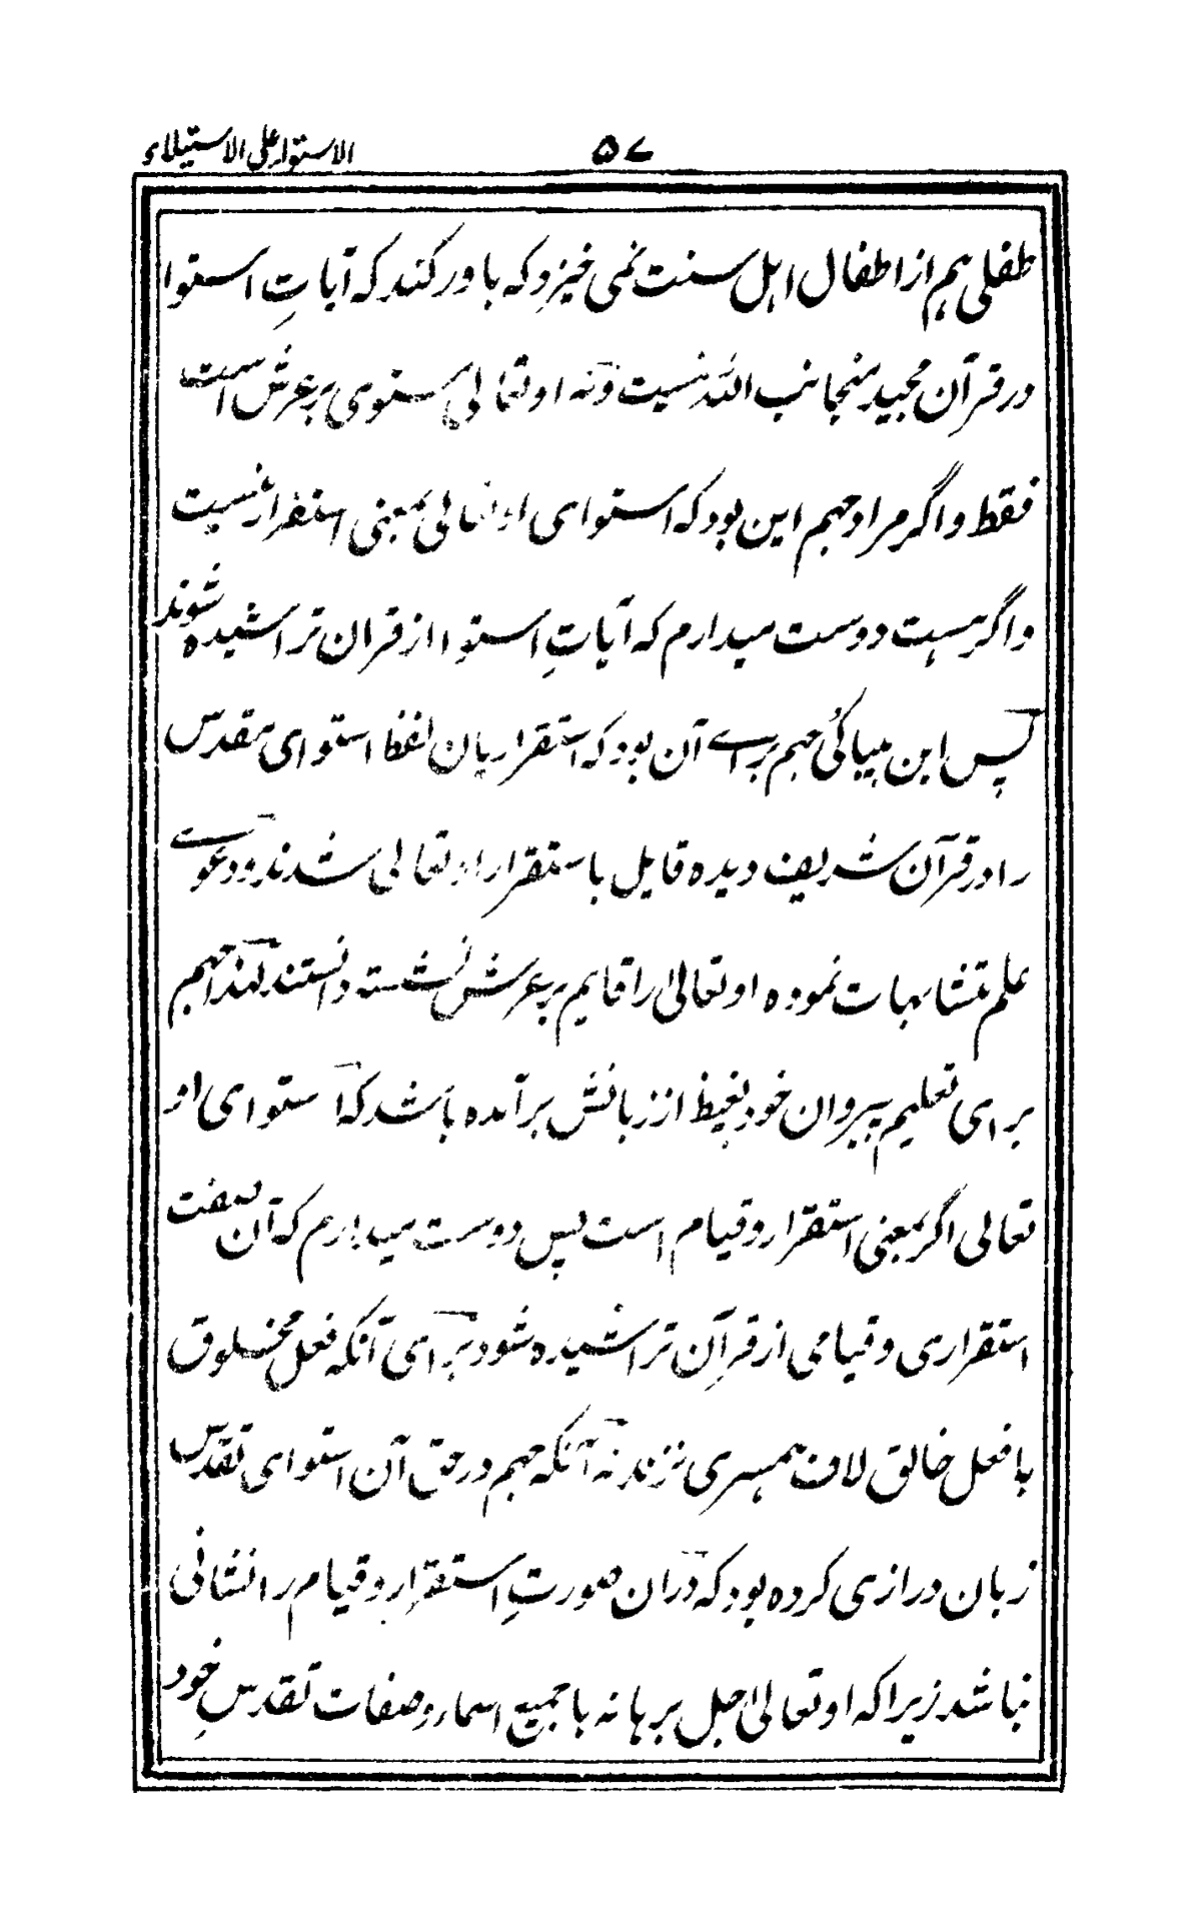 ۵۷ الاستواء علی الاستیلاء
طفلی هم از اطفال اہل سنت نمی خیزد که باور کند که آیاتِ استوا
در قرآن مجید منجانب اللہ نیست ونه او تعالی مستوی بر عرش است
فقط و اگر مراد جہم این بود که استوای او تعالی بمعنی استقرار نیست
و اگر ہست دوست میدارم که آیاتِ استوا از قران تراشیده شوند
پس این بیباکی جہم برای آن بود که استقراریان لفظ استوای مقدس
را در قرآن شریف دیده قایل باستقرار او تعالی شدند ودعوے
علم متشابہات نموده او تعالیٰ را قایم بر عرش نشسته دانستند لہٰذا جہم
برای تعلیم پیروان خود بغیظ از زبانش برآمده باشد که استوای او
تعالی اگر بمعنی استقرار و قیام است پس دوست میدارم که آن صفت
استقراری و قیامی از قرآن تراشیده شود برای آنکه فعل مخلوق
با فعل خالق لاف ہمسری نزند نه آنکه جہم در حق آن استوای تقدس
زبان درازی کرده بود که دران صورتِ استقرار و قیام را نشانی
نباشد زیرا که او تعالیٰ جل برہانه با جمیع اسماء و صفات تقدسِ خود